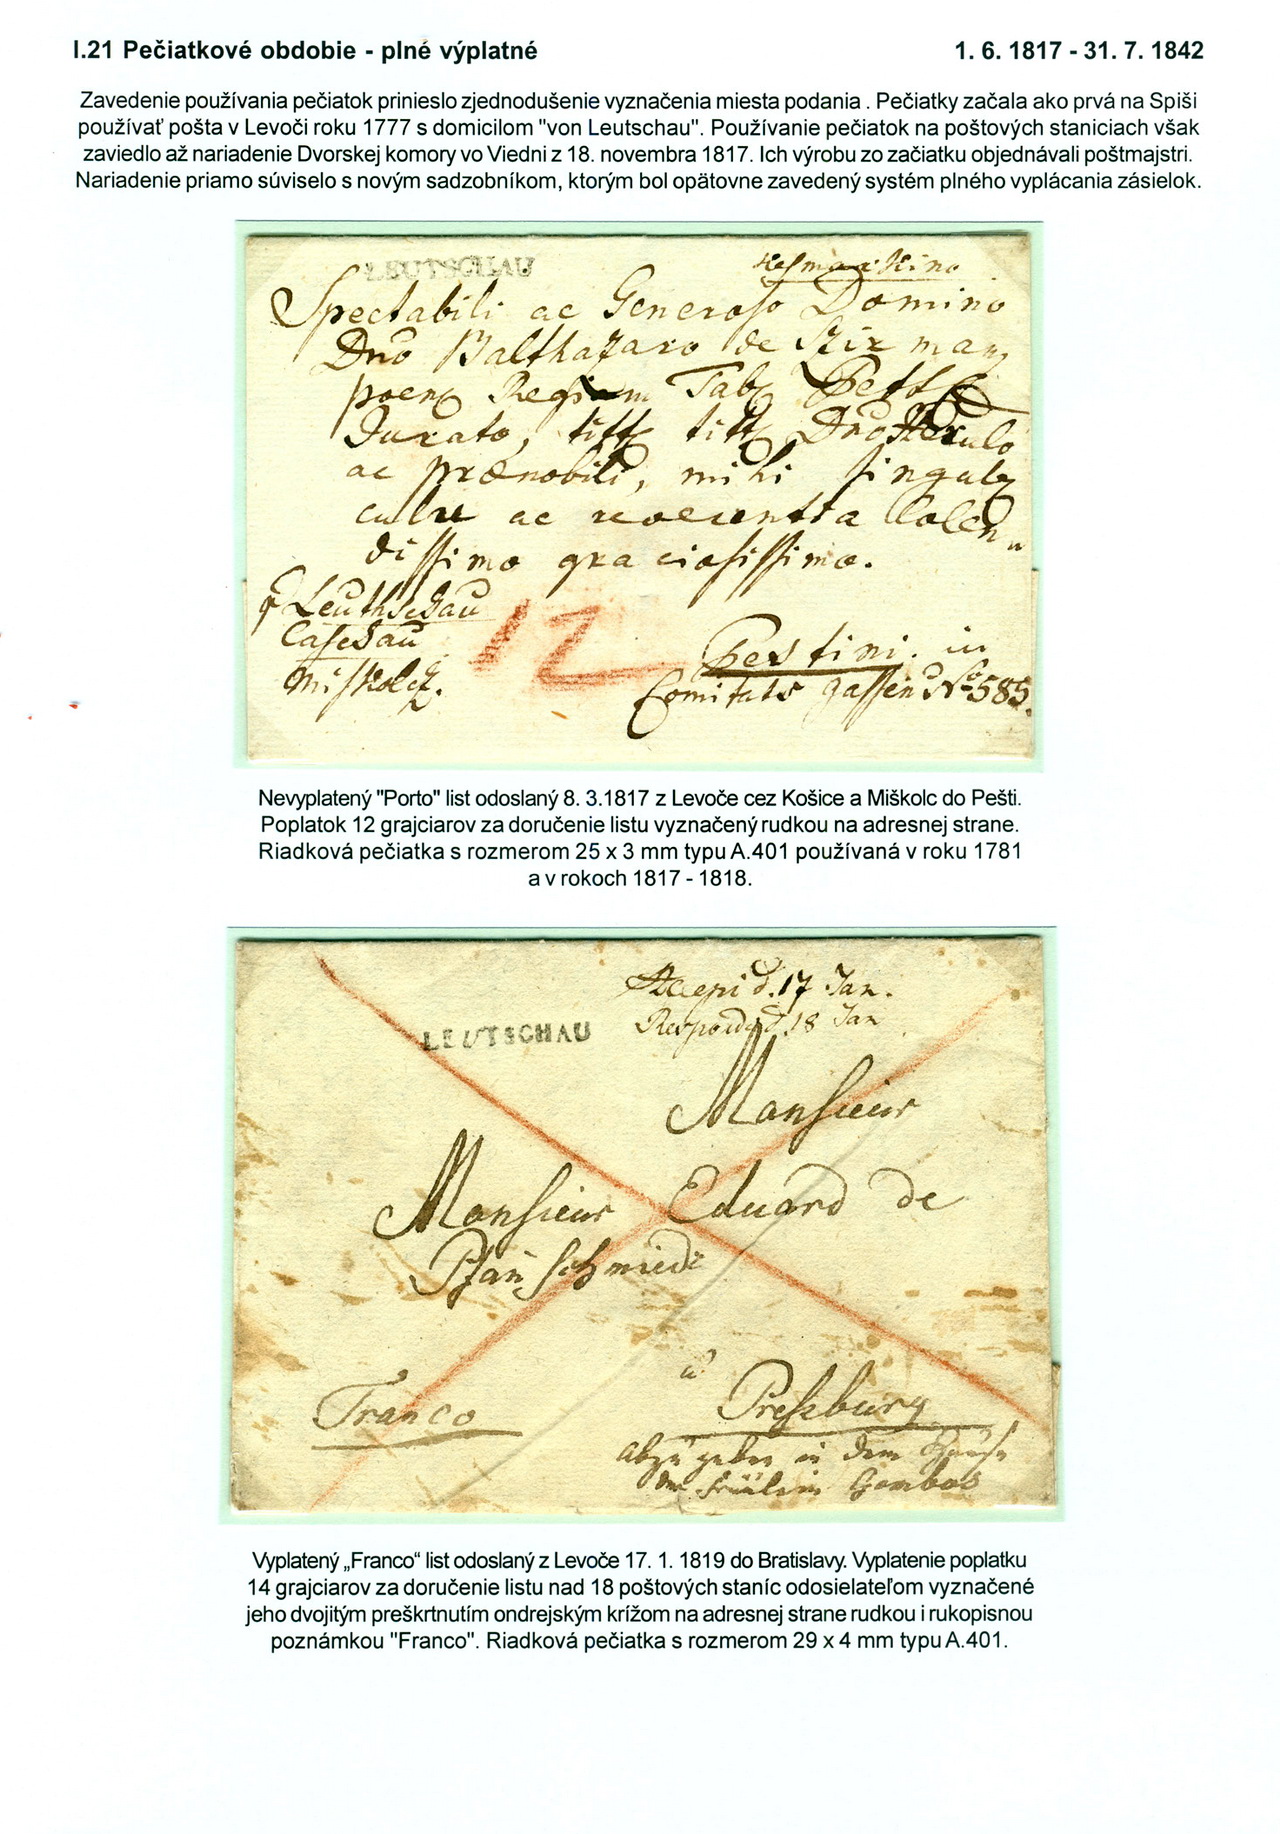 I.21 Pečiatkové obdobie - plné výplatné 1. 6. 1817 - 31. 7. 1842
Zavedenie používania pečiatok prinieslo zjednodušenie vyznačenia miesta podania . Pečiatky začala ako prvá na Spiši
používať pošta v Levoči roku 1777 s domicilom "von Leutschau". Používanie pečiatok na poštových staniciach však
zaviedlo až nariadenie Dvorskej komory vo Viedni z 18. novembra 1817. Ich výrobu zo začiatku objednávali poštmajstri.
Nariadenie priamo súviselo s novým sadzobníkom, ktorým bol opätovne zavedený systém plného vyplácania zásielok.
LEUTSCHAU
Spectabili ac Generoso Domino
Dno Balthazaro de Szirmay
Jurato, titt titt Dno
ac prænobili, mihi singul
ac reverentia Colen
dissimo graciosissimo.
Leuthschau
Caschau
Miskolcz.
12
Pestini. in
Comitats gassen No 585.
Nevyplatený "Porto" list odoslaný 8. 3.1817 z Levoče cez Košice a Miškolc do Pešti.
Poplatok 12 grajciarov za doručenie listu vyznačený rudkou na adresnej strane.
Riadková pečiatka s rozmerom 25 x 3 mm typu A.401 používaná v roku 1781
a v rokoch 1817 - 1818.
Accepi d. 17 Jan.
LEUTSCHAU
d. 18 Jan
Monsieur
Monsieur Eduard de
Pfannschmiedt
a
Franco
Presburg
abzugeben in dem Hause
der Fräulein Gombos
Vyplatený „Franco“ list odoslaný z Levoče 17. 1. 1819 do Bratislavy. Vyplatenie poplatku
14 grajciarov za doručenie listu nad 18 poštových staníc odosielateľom vyznačené
jeho dvojitým preškrtnutím ondrejským krížom na adresnej strane rudkou i rukopisnou
poznámkou "Franco". Riadková pečiatka s rozmerom 29 x 4 mm typu A.401.